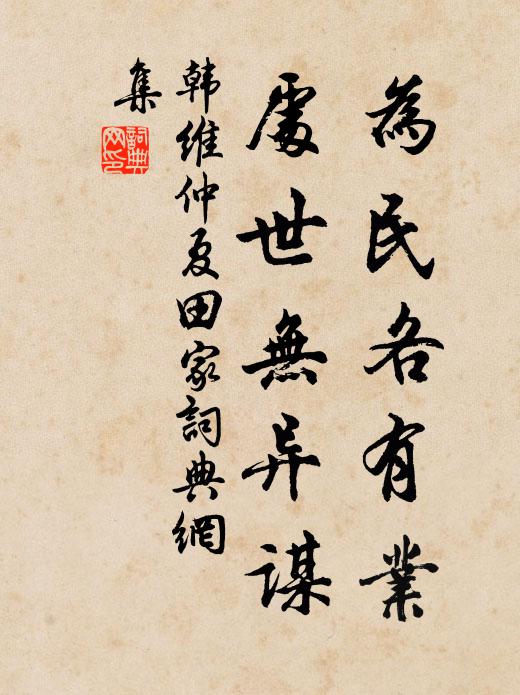 為民各有業
處世無异謀
韩維仲夏田家詞典網
集
詞典網印